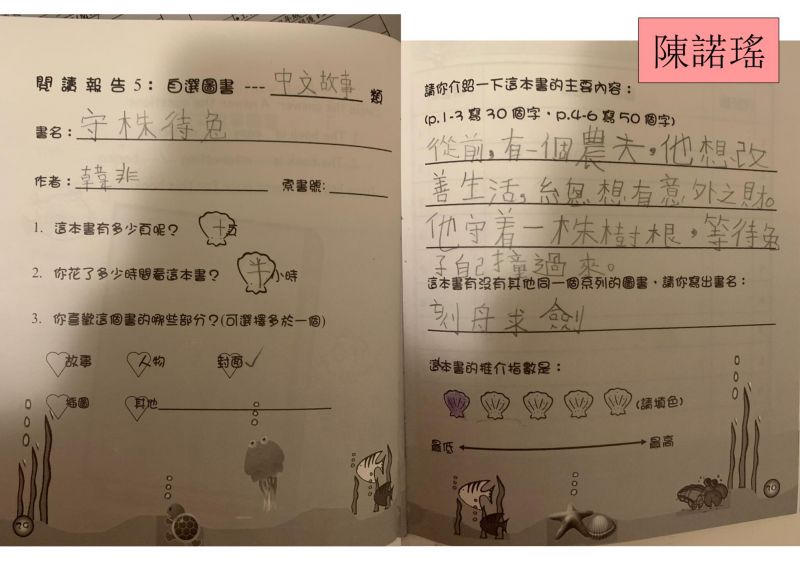 陳諾瑤
閱讀報告5：自選圖書 --- 中文故事 類
書名：守株待兔
作者：韓非 索書號：
1. 這本書有多少頁呢？ 十頁
2. 你花了多少時間看這本書？ 半小時
3. 你喜歡這個書的哪些部分？(可選擇多於一個)
故事 人物 封面✓
插圖 其他
請你介紹一下這本書的主要內容：
(p.1-3 寫 30 個字，p.4-6 寫 50 個字)
從前，有一個農夫，他想改
善生活，總想有意外之財。
他守着一株樹根，等待兔
子自己撞過來。
這本書有沒有其他同一個系列的圖書，請你寫出書名：
刻舟求劍
這本書的推介指數是：
(請填色)
最低 最高